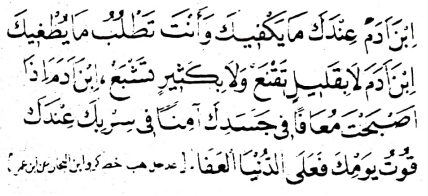 اِبْنَ اٰدَمَ عِنْدَكَ مَا يَكْفِيكَ وَأَنْتَ تَطْلُبُ مَا يُطْغِيكَ
اِبْنَ آدَمَ لَا بِقَلِيلٍ تَقْنَعُ وَلَا بِكَثِيرٍ تَشْبَعُ، اِبْنَ آدَمَ اِذَا
اَصْبَحْتَ مُعَافًا فِي جَسَدِكَ آمِنًا فِي سِرْبِكَ عِنْدَكَ
قُوتُ يَوْمِكَ فَعَلَى الدُّنْيَا الْعَفَا. (عد حل هب خط كر وابن النجار عن ابن عمر)